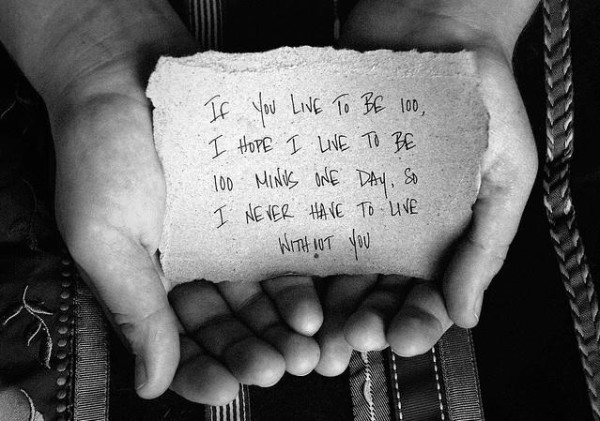 IF YOU LIVE TO BE 100,
I HOPE I LIVE TO BE
100 MINUS ONE DAY, SO
I NEVER HAVE TO LIVE
WITHOUT YOU